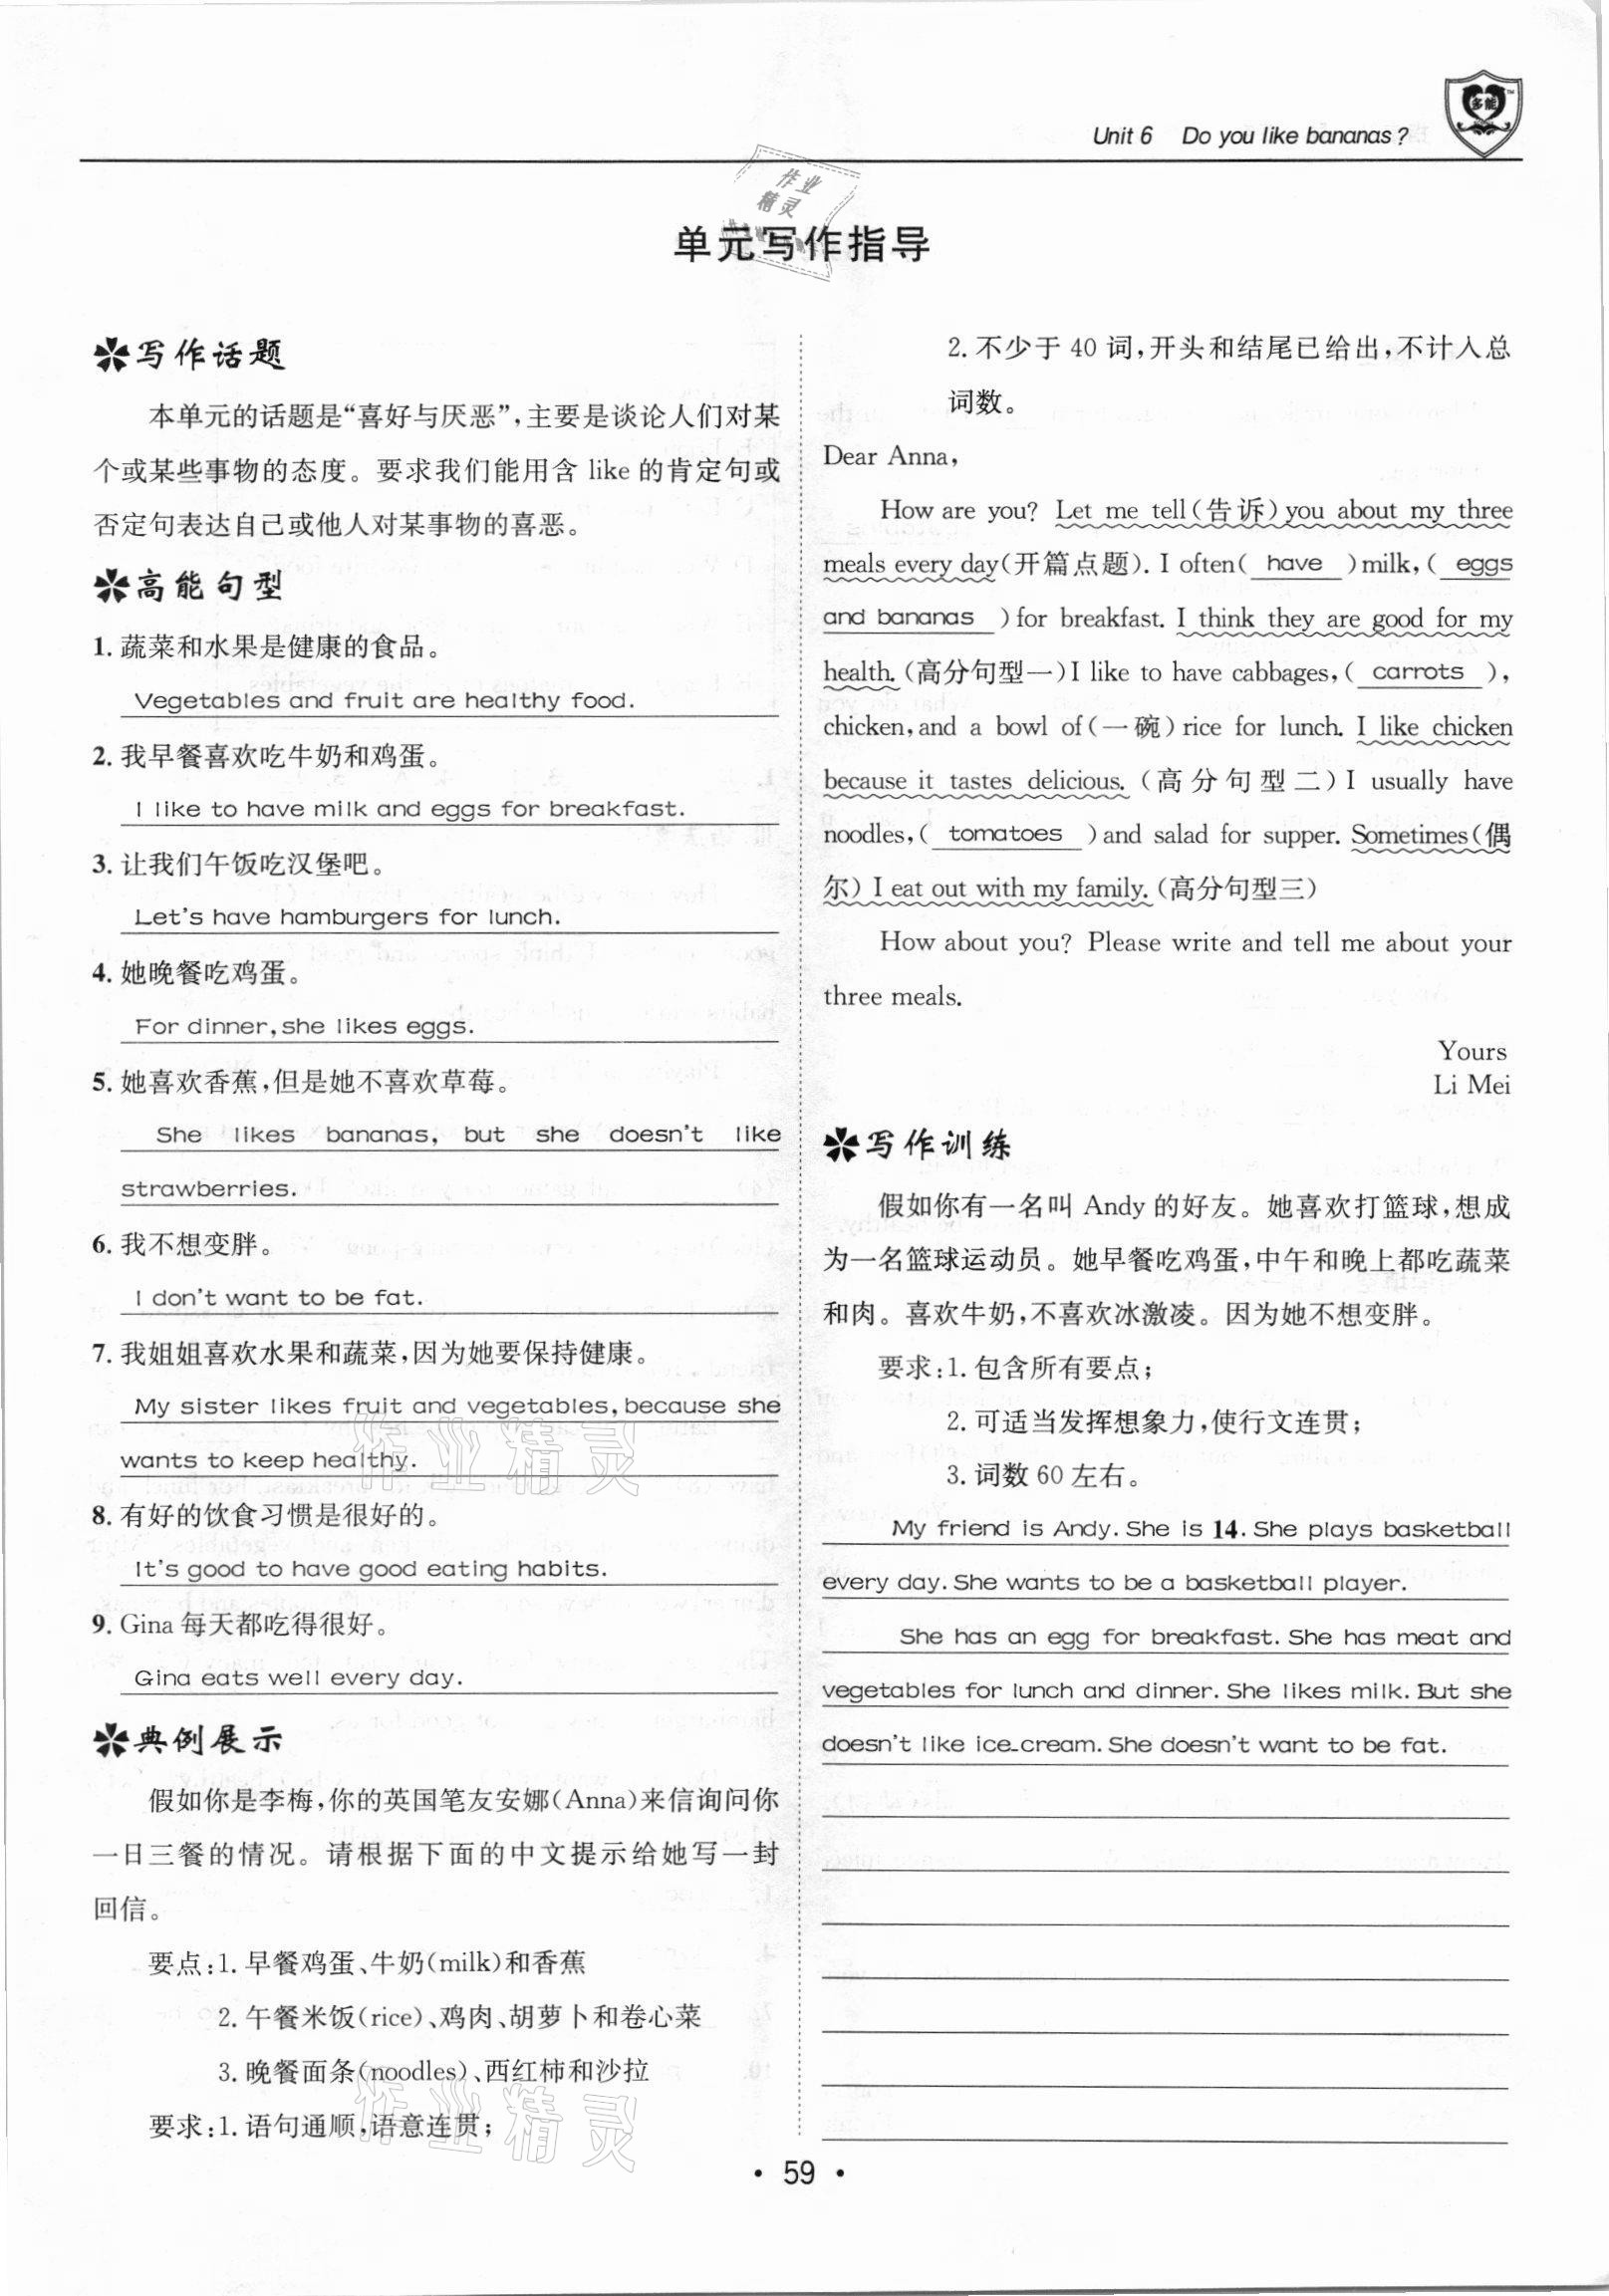 Unit 6 Do you like bananas?
多能
单元写作指导
作业
精灵
写作话题
本单元的话题是“喜好与厌恶”,主要是谈论人们对某
个或某些事物的态度。要求我们能用含 like 的肯定句或
否定句表达自己或他人对某事物的喜恶。
高能句型
1. 蔬菜和水果是健康的食品。
Vegetables and fruit are healthy food.
2. 我早餐喜欢吃牛奶和鸡蛋。
I like to have milk and eggs for breakfast.
3. 让我们午饭吃汉堡吧。
Let's have hamburgers for lunch.
4. 她晚餐吃鸡蛋。
For dinner, she likes eggs.
5. 她喜欢香蕉,但是她不喜欢草莓。
She likes bananas, but she doesn't like
strawberries.
6. 我不想变胖。
I don't want to be fat.
7. 我姐姐喜欢水果和蔬菜,因为她要保持健康。
My sister likes fruit and vegetables, because she
wants to keep healthy.
8. 有好的饮食习惯是很好的。
It's good to have good eating habits.
9. Gina 每天都吃得很好。
Gina eats well every day.
典例展示
假如你是李梅,你的英国笔友安娜(Anna)来信询问你
一日三餐的情况。请根据下面的中文提示给她写一封
回信。
要点:1. 早餐鸡蛋、牛奶(milk)和香蕉
2. 午餐米饭(rice)、鸡肉、胡萝卜和卷心菜
3. 晚餐面条(noodles)、西红柿和沙拉
要求:1. 语句通顺,语意连贯;
2. 不少于 40 词,开头和结尾已给出,不计入总
词数。
Dear Anna,
How are you? Let me tell(告诉)you about my three
meals every day(开篇点题). I often( have )milk,( eggs
and bananas )for breakfast. I think they are good for my
health.(高分句型一)I like to have cabbages,( carrots ),
chicken, and a bowl of(一碗)rice for lunch. I like chicken
because it tastes delicious.(高分句型二)I usually have
noodles,( tomatoes )and salad for supper. Sometimes(偶
尔) I eat out with my family.(高分句型三)
How about you? Please write and tell me about your
three meals.
Yours
Li Mei
写作训练
假如你有一名叫 Andy 的好友。她喜欢打篮球,想成
为一名篮球运动员。她早餐吃鸡蛋,中午和晚上都吃蔬菜
和肉。喜欢牛奶,不喜欢冰激凌。因为她不想变胖。
要求:1. 包含所有要点;
2. 可适当发挥想象力,使行文连贯;
3. 词数 60 左右。
My friend is Andy. She is 14. She plays basketball
every day. She wants to be a basketball player.
She has an egg for breakfast. She has meat and
vegetables for lunch and dinner. She likes milk. But she
doesn't like ice-cream. She doesn't want to be fat.
作业精灵
作业精灵
· 59 ·